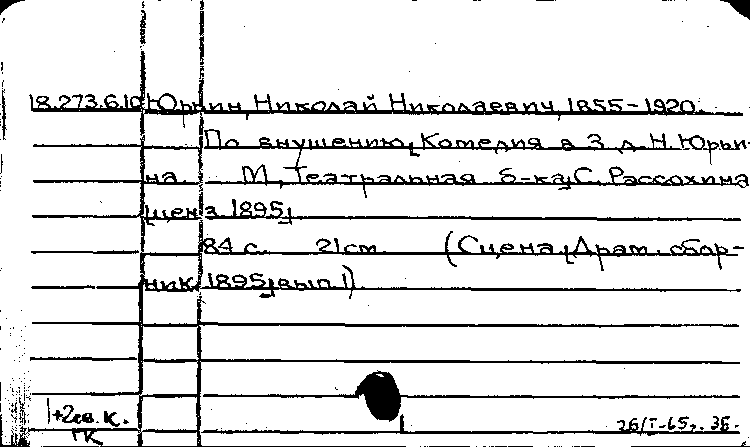 18.273.6.10 Юрьин, Николай Николаевич, 1855-1920.
По внушению, Комедия в 3 д. Н. Юрьи-
на. М, Театральная б-ка С. Рассохина
ценз. 1895,
84 с. 21 см (Сцена, Драм. сбор-
ник 1895, вып 1)
1+2св. к.
ГК
26/I-65г. 35.